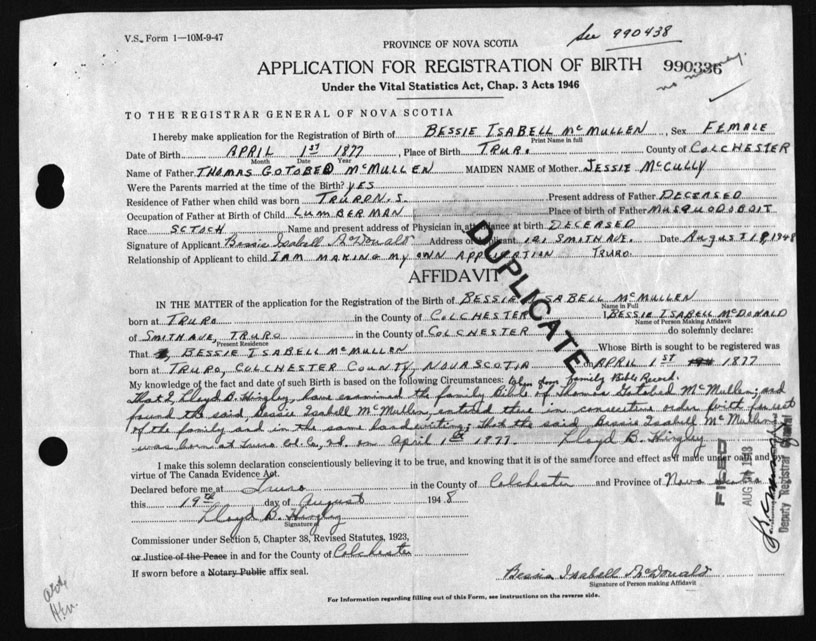 V.S. Form 1—10M-9-47
See 990438
PROVINCE OF NOVA SCOTIA
APPLICATION FOR REGISTRATION OF BIRTH 990336
no money.
Under the Vital Statistics Act, Chap. 3 Acts 1946
TO THE REGISTRAR GENERAL OF NOVA SCOTIA
I hereby make application for the Registration of Birth of BESSIE ISABELL MCMULLEN, Sex FEMALE
Print Name in full
Date of Birth APRIL 1st 1877, Place of Birth TRURO. County of COLCHESTER
Month Date Year
Name of Father THOMAS GOTOBED MCMULLEN MAIDEN NAME of Mother JESSIE MCCULLY
Were the Parents married at the time of the Birth? YES
Residence of Father when child was born TRURO N.S. Present address of Father DECEASED
Occupation of Father at Birth of Child LUMBERMAN Place of birth of Father MUSQUODOBOIT
Race SCTOCH Name and present address of Physician in attendance at birth DECEASED
Signature of Applicant Bessie Isabell McDonald Address of Applicant 121 SMITH AVE. Date August 19, 1948
Relationship of Applicant to child I AM MAKING MY OWN APPLICATION TRURO.
DUPLICATE
AFFIDAVIT
IN THE MATTER of the application for the Registration of the Birth of BESSIE ISABELL MCMULLEN
Name in Full
born at TRURO in the County of COLCHESTER I, BESSIE ISABELL MCDONALD
Name of Person Making Affidavit
of SMITH AVE, TRURO in the County of COLCHESTER do solemnly declare:
Present Residence
That BESSIE ISABELL MCMULLEN Whose Birth is sought to be registered was
born at TRURO, COLCHESTER COUNTY, NOVA SCOTIA on APRIL 1ST 1877
My knowledge of the fact and date of such Birth is based on the following Circumstances: taken from family Bible Record.
That I, Lloyd B. Hingley, have examined the family Bible of Thomas Gotobed McMullen; and
found the said, Bessie Isabell McMullen, entered there in consecutive order with the rest
of the family and in the same handwriting; that the said Bessie Isabell McMullen
was born at Truro Col. Co. on April 1st 1877. Lloyd B. Hingley
I make this solemn declaration conscientiously believing it to be true, and knowing that it is of the same force and effect as if made under oath and by
virtue of The Canada Evidence Act.
Declared before me at Truro in the County of Colchester and Province of Nova Scotia
this 19th day of August 1948
Lloyd B. Hingley
Signature
FILED
AUG 1948
Deputy Registrar General
Commissioner under Section 5, Chapter 38, Revised Statutes, 1923,
or Justice of the Peace in and for the County of Colchester
If sworn before a Notary Public affix seal.
Bessie Isabell McDonald
Signature of Person making Affidavit
For Information regarding filling out of this Form, see instructions on the reverse side.